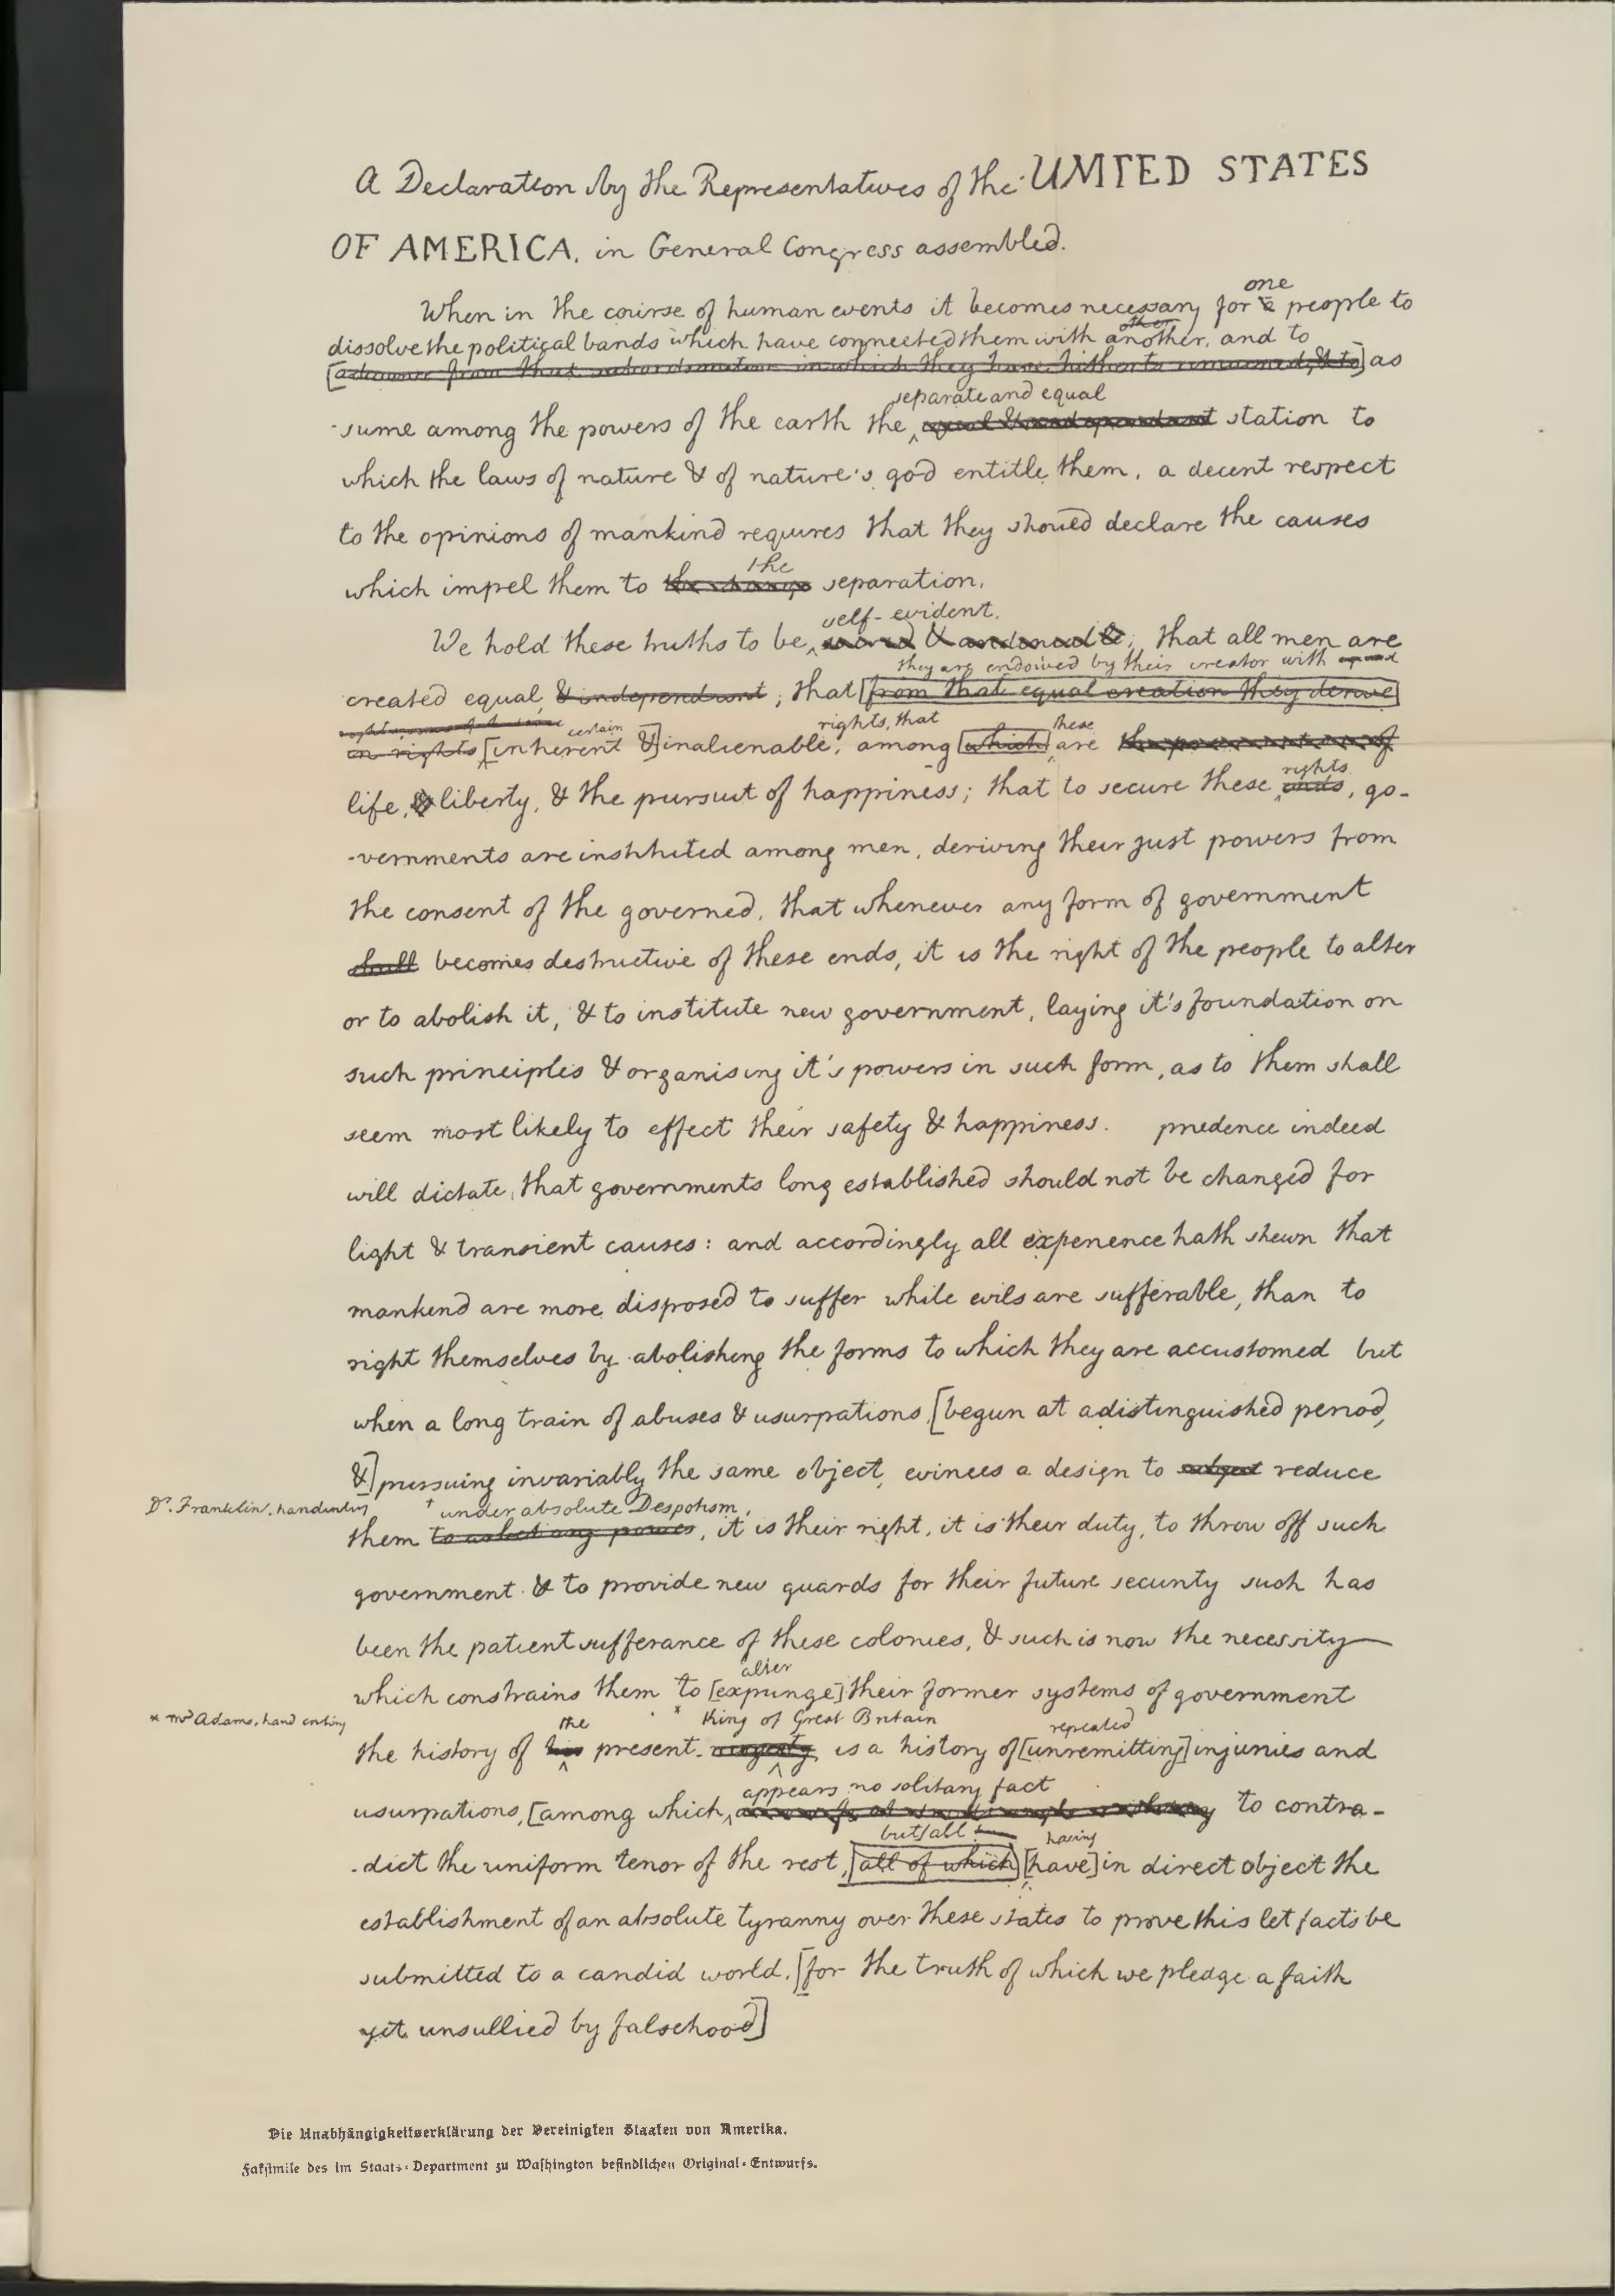 A Declaration by the Representatives of the UNITED STATES
OF AMERICA. in General Congress assembled.
one
When in the course of human events it becomes necessary for a people to
other
dissolve the political bands which have connected them with another, and to
[advance from that subordination in which they have hitherto remained, & to] as
separate and equal
-sume among the powers of the earth the equal & independant station to
which the laws of nature & of nature's god entitle them, a decent respect
to the opinions of mankind requires that they should declare the causes
the
which impel them to the change separation.
self-evident.
We hold these truths to be sacred & undeniable; that all men are
they are endowed by their creator with equal
created equal & independant; that [from that equal creation they derive
rights, that
certain these
in rights [inherent &] inalienable, among [which] are the preservation of
rights
life, & liberty, & the pursuit of happiness; that to secure these ends, go-
-vernments are instituted among men, deriving their just powers from
the consent of the governed, that whenever any form of government
shall becomes destructive of these ends, it is the right of the people to alter
or to abolish it, & to institute new government, laying it's foundation on
such principles & organising it's powers in such form, as to them shall
seem most likely to effect their safety & happiness. prudence indeed
will dictate, that governments long established should not be changed for
light & transient causes: and accordingly all experience hath shewn that
mankind are more disposed to suffer while evils are sufferable, than to
right themselves by abolishing the forms to which they are accustomed but
when a long train of abuses & usurpations, [begun at a distinguished period,
&] pursuing invariably the same object, evinces a design to subject reduce
Dr. Franklin, handwriting † under absolute Despotism,
them to, it is their right, it is their duty, to throw off such
government & to provide new guards for their future security such has
been the patient sufferance of these colonies, & such is now the necessity
alter
which constrains them to [expunge] their former systems of government
* Mr Adams, hand writing the * King of Great Britain repeated
the history of his present majesty is a history of [unremitting] injuries and
appears no solitary fact
usurpations, [among which, to contra-
but all having
-dict the uniform tenor of the rest, [all of which] [have] in direct object the
establishment of an absolute tyranny over these states to prove this let facts be
submitted to a candid world. [for the truth of which we pledge a faith
yet unsullied by falsehood]
Die Unabhängigkeitserklärung der Vereinigten Staaten von Amerika.
Faksimile des im Staats-Department zu Washington befindlichen Original-Entwurfs.